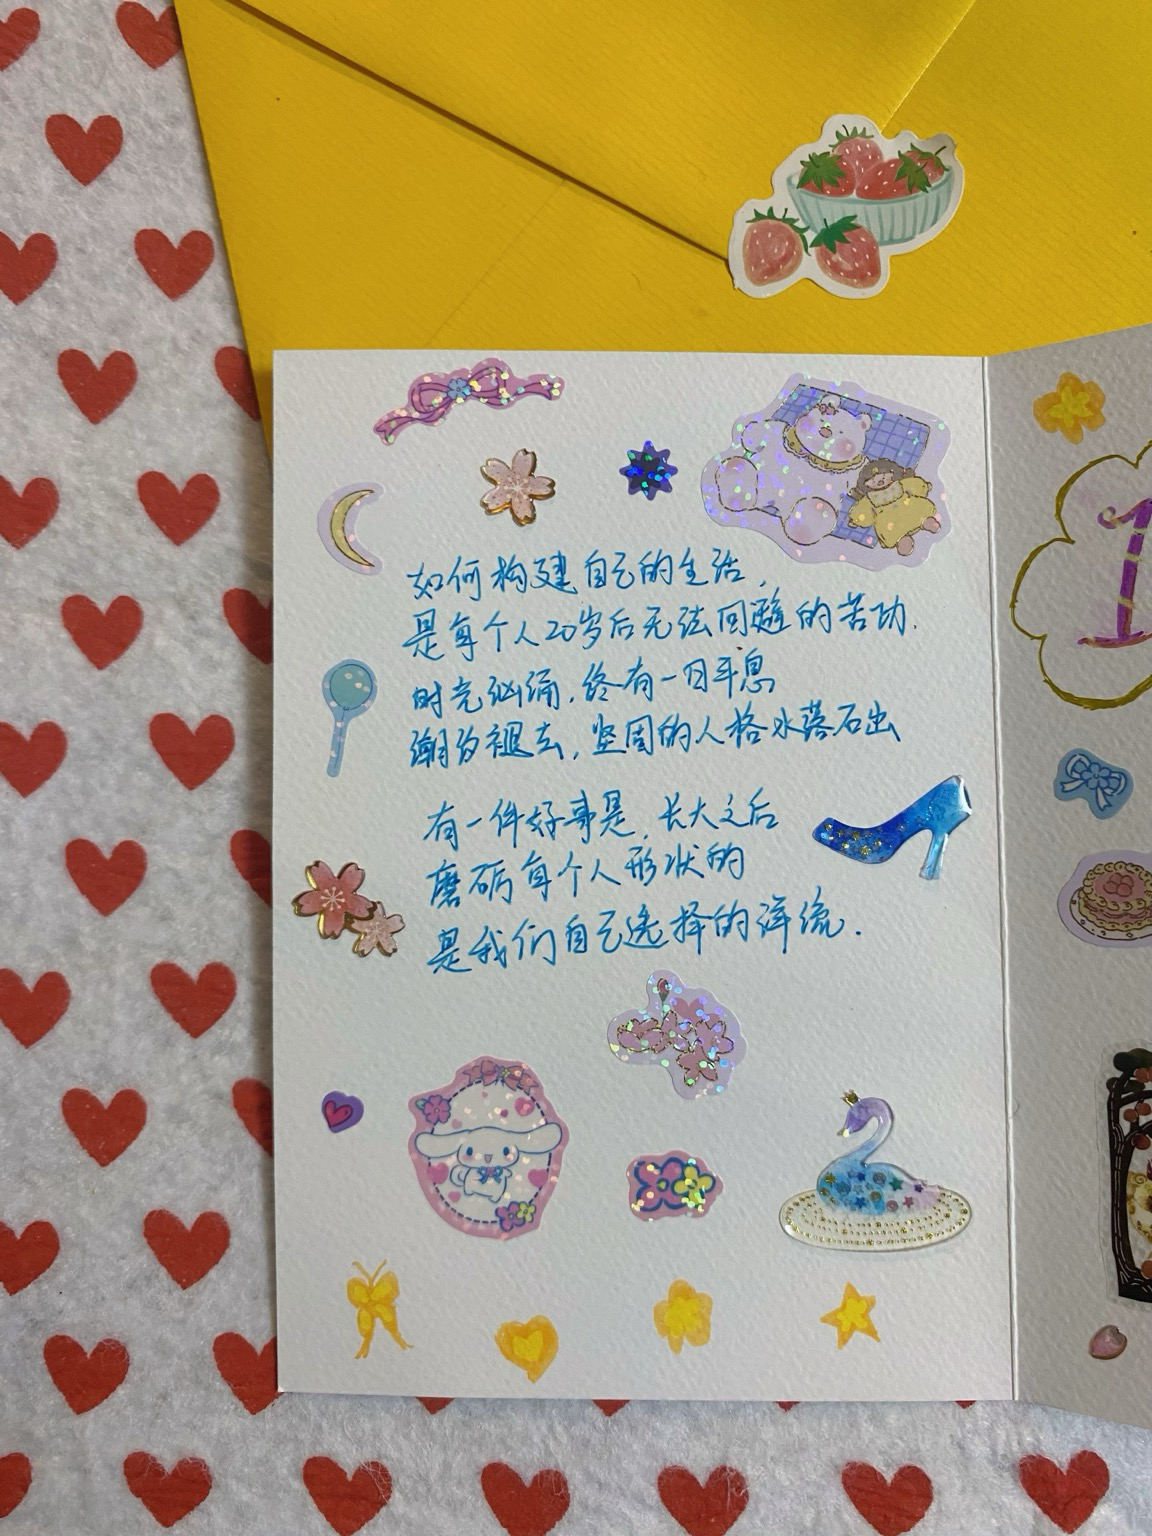 如何构建自己的生活,
是每个人20岁后无法回避的苦功.
时光汹涌,终有一日平息
潮汐褪去,坚固的人格水落石出
有一件好事是,长大之后
磨砺每个人形状的
是我们自己选择的洋流.
1